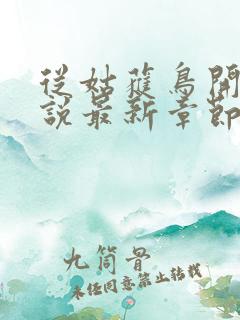 從姑獲鳥開
說最新章節
九筒骨
未任同意禁止转载